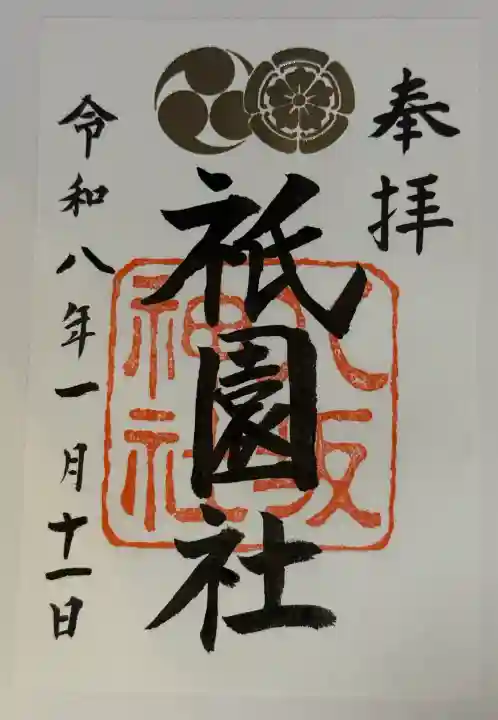 奉拝
祇園社
八坂
神社
令和八年一月十一日